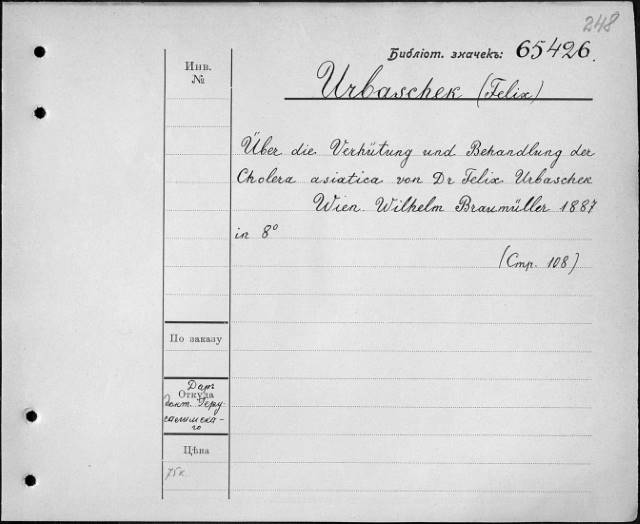 248
Библіот. значекъ: 65426.
Инв.
№
Urbaschek (Felix)
Über die Verhütung und Behandlung der
Cholera asiatica von Dr Felix Urbaschek
Wien Wilhelm Braumüller 1887
in 8°
(Стр. 108)
По заказу
Откуда
Даръ
докт. Іеру-
салимска-
го
Цѣна
75к